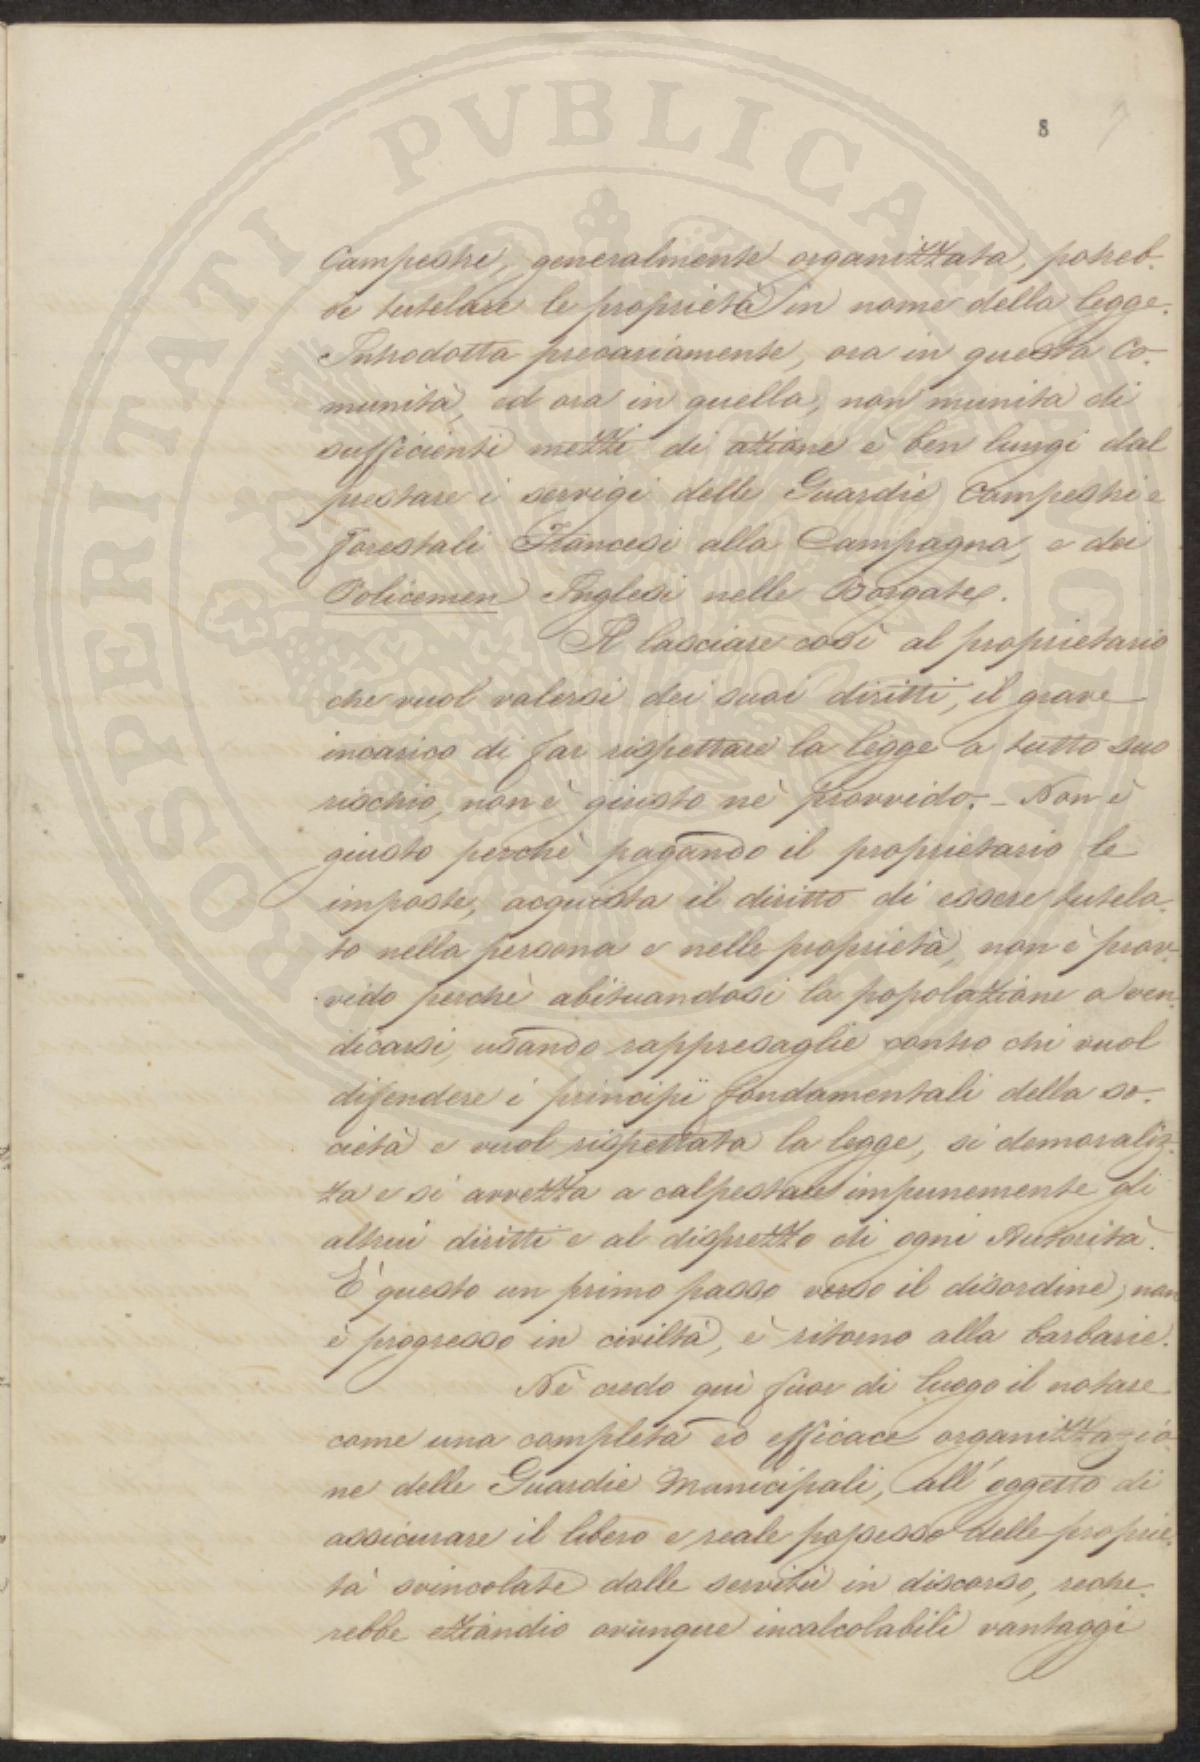 PROSPERITATI PVBLICAE AVGENDAE
8
7
Campestre, generalmente organizzata, potreb-
be tutelare le proprietà in nome della legge.
Introdotta precariamente, ora in questa Co-
munità, ed ora in quella, non munita di
sufficienti mezzi di azione è ben lungi dal
prestare i servigi delle Guardie Campestri e
Forestali Francesi alla Campagna, e dei
Policemen Inglesi nelle Borgate.
Il lasciare così al proprietario
che vuol valersi dei suoi diritti, il grave
incarico di far rispettare la legge a tutto suo
rischio, non è giusto nè provvido. - Non è
giusto perchè pagando il proprietario le
imposte, acquista il diritto di essere tutela-
to nella persona e nelle proprietà, non è prov-
vido perchè abituandosi la popolazione a ven-
dicarsi, usando rappresaglie contro chi vuol
difendere i principii fondamentali della so-
cietà e vuol rispettata la legge, si demoraliz-
za e si avvezza a calpestare impunemente gli
altrui diritti e al disprezzo di ogni Autorità.
È questo un primo passo verso il disordine, non
è progresso in civiltà, è ritorno alla barbarie.
Nè credo quì fuor di luogo il notare
come una completa ed efficace organizzazio-
ne delle Guardie Municipali, all'oggetto di
assicurare il libero e reale possesso delle proprie-
tà svincolate dalle servitù in discorso, reche-
rebbe eziandio ovunque incalcolabili vantaggi